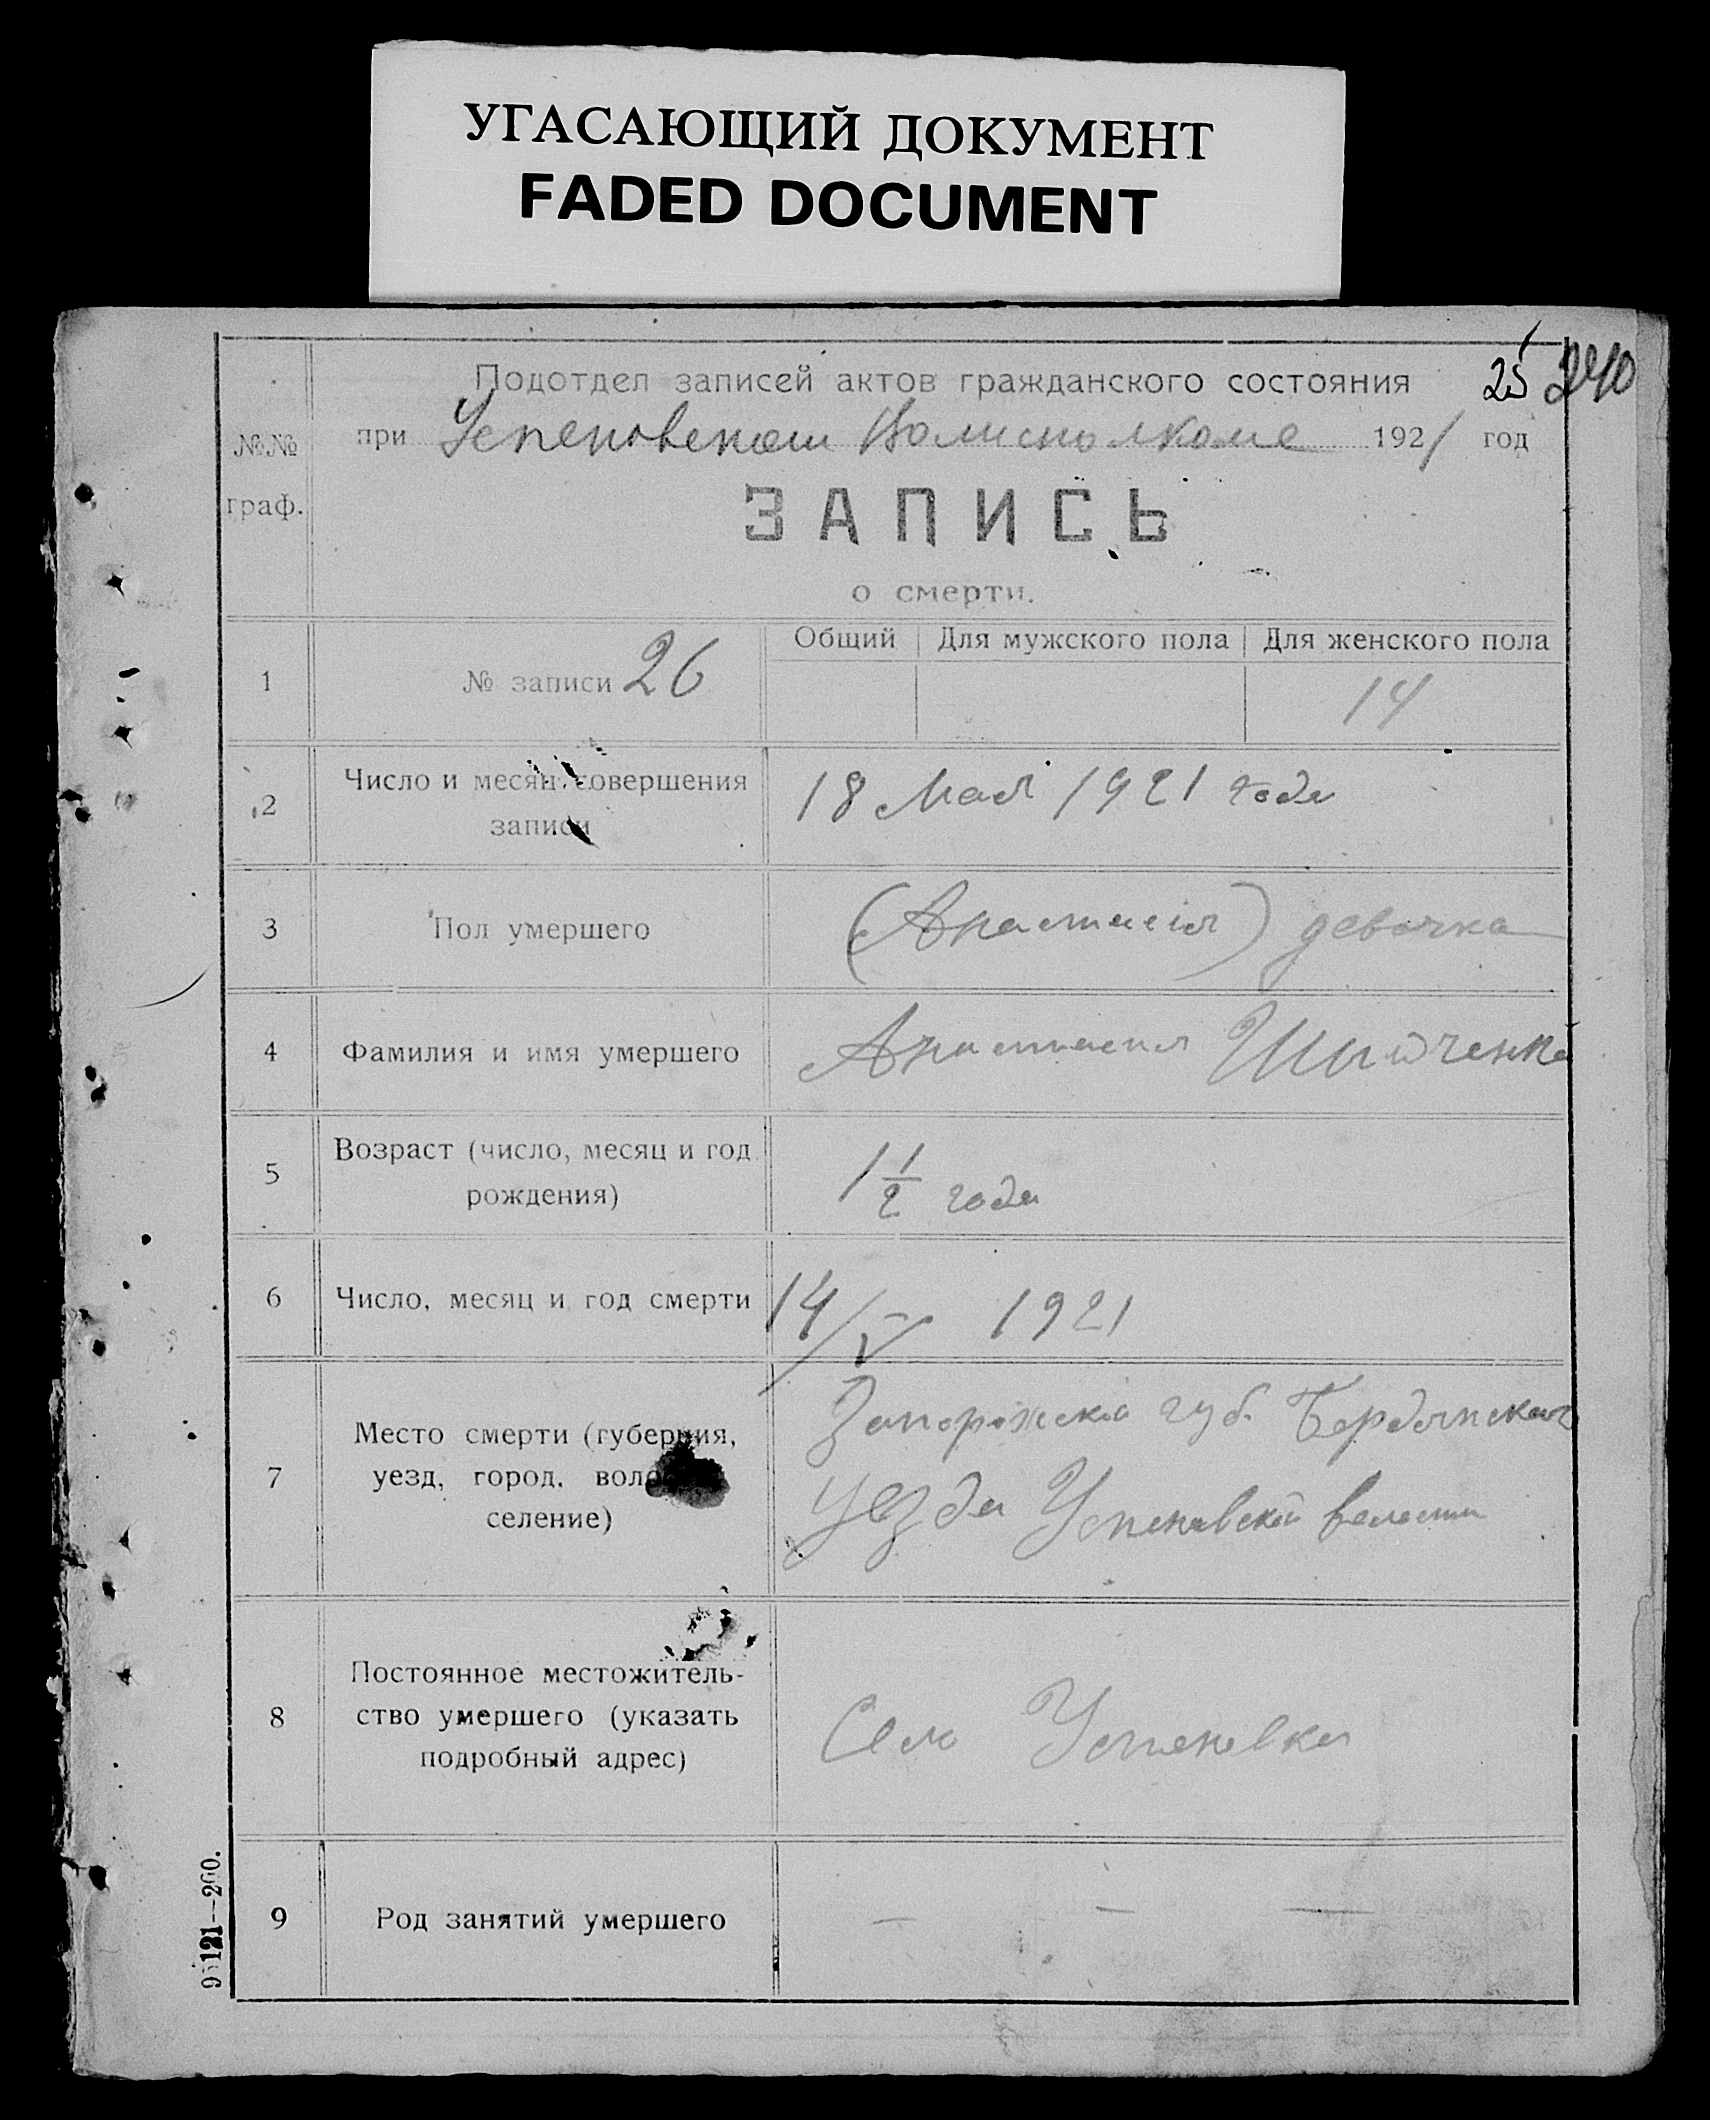 УГАСАЮЩИЙ ДОКУМЕНТ
FADED DOCUMENT
25 240
Подотдел записей актов гражданского состояния
при Успеновском Волисполкоме 1921 год
№№ граф.
ЗАПИСЬ
о смерти.
Общий Для мужского пола Для женского пола
1 № записи 26 14
2 Число и месяц совершения записи 18 Мая 1921 года
3 Пол умершего (Анастасія) девочка
4 Фамилия и имя умершего Анастасия
5 Возраст (число, месяц и год рождения) 1 1/2 года
6 Число, месяц и год смерти 14/V 1921
7 Место смерти (губерния, уезд, город, воло селение) Запорожской губ. Бердянского
уезда Успеновской волости
8 Постоянное местожитель-
ство умершего (указать
подробный адрес) Село Успеновка
9 Род занятий умершего — — —